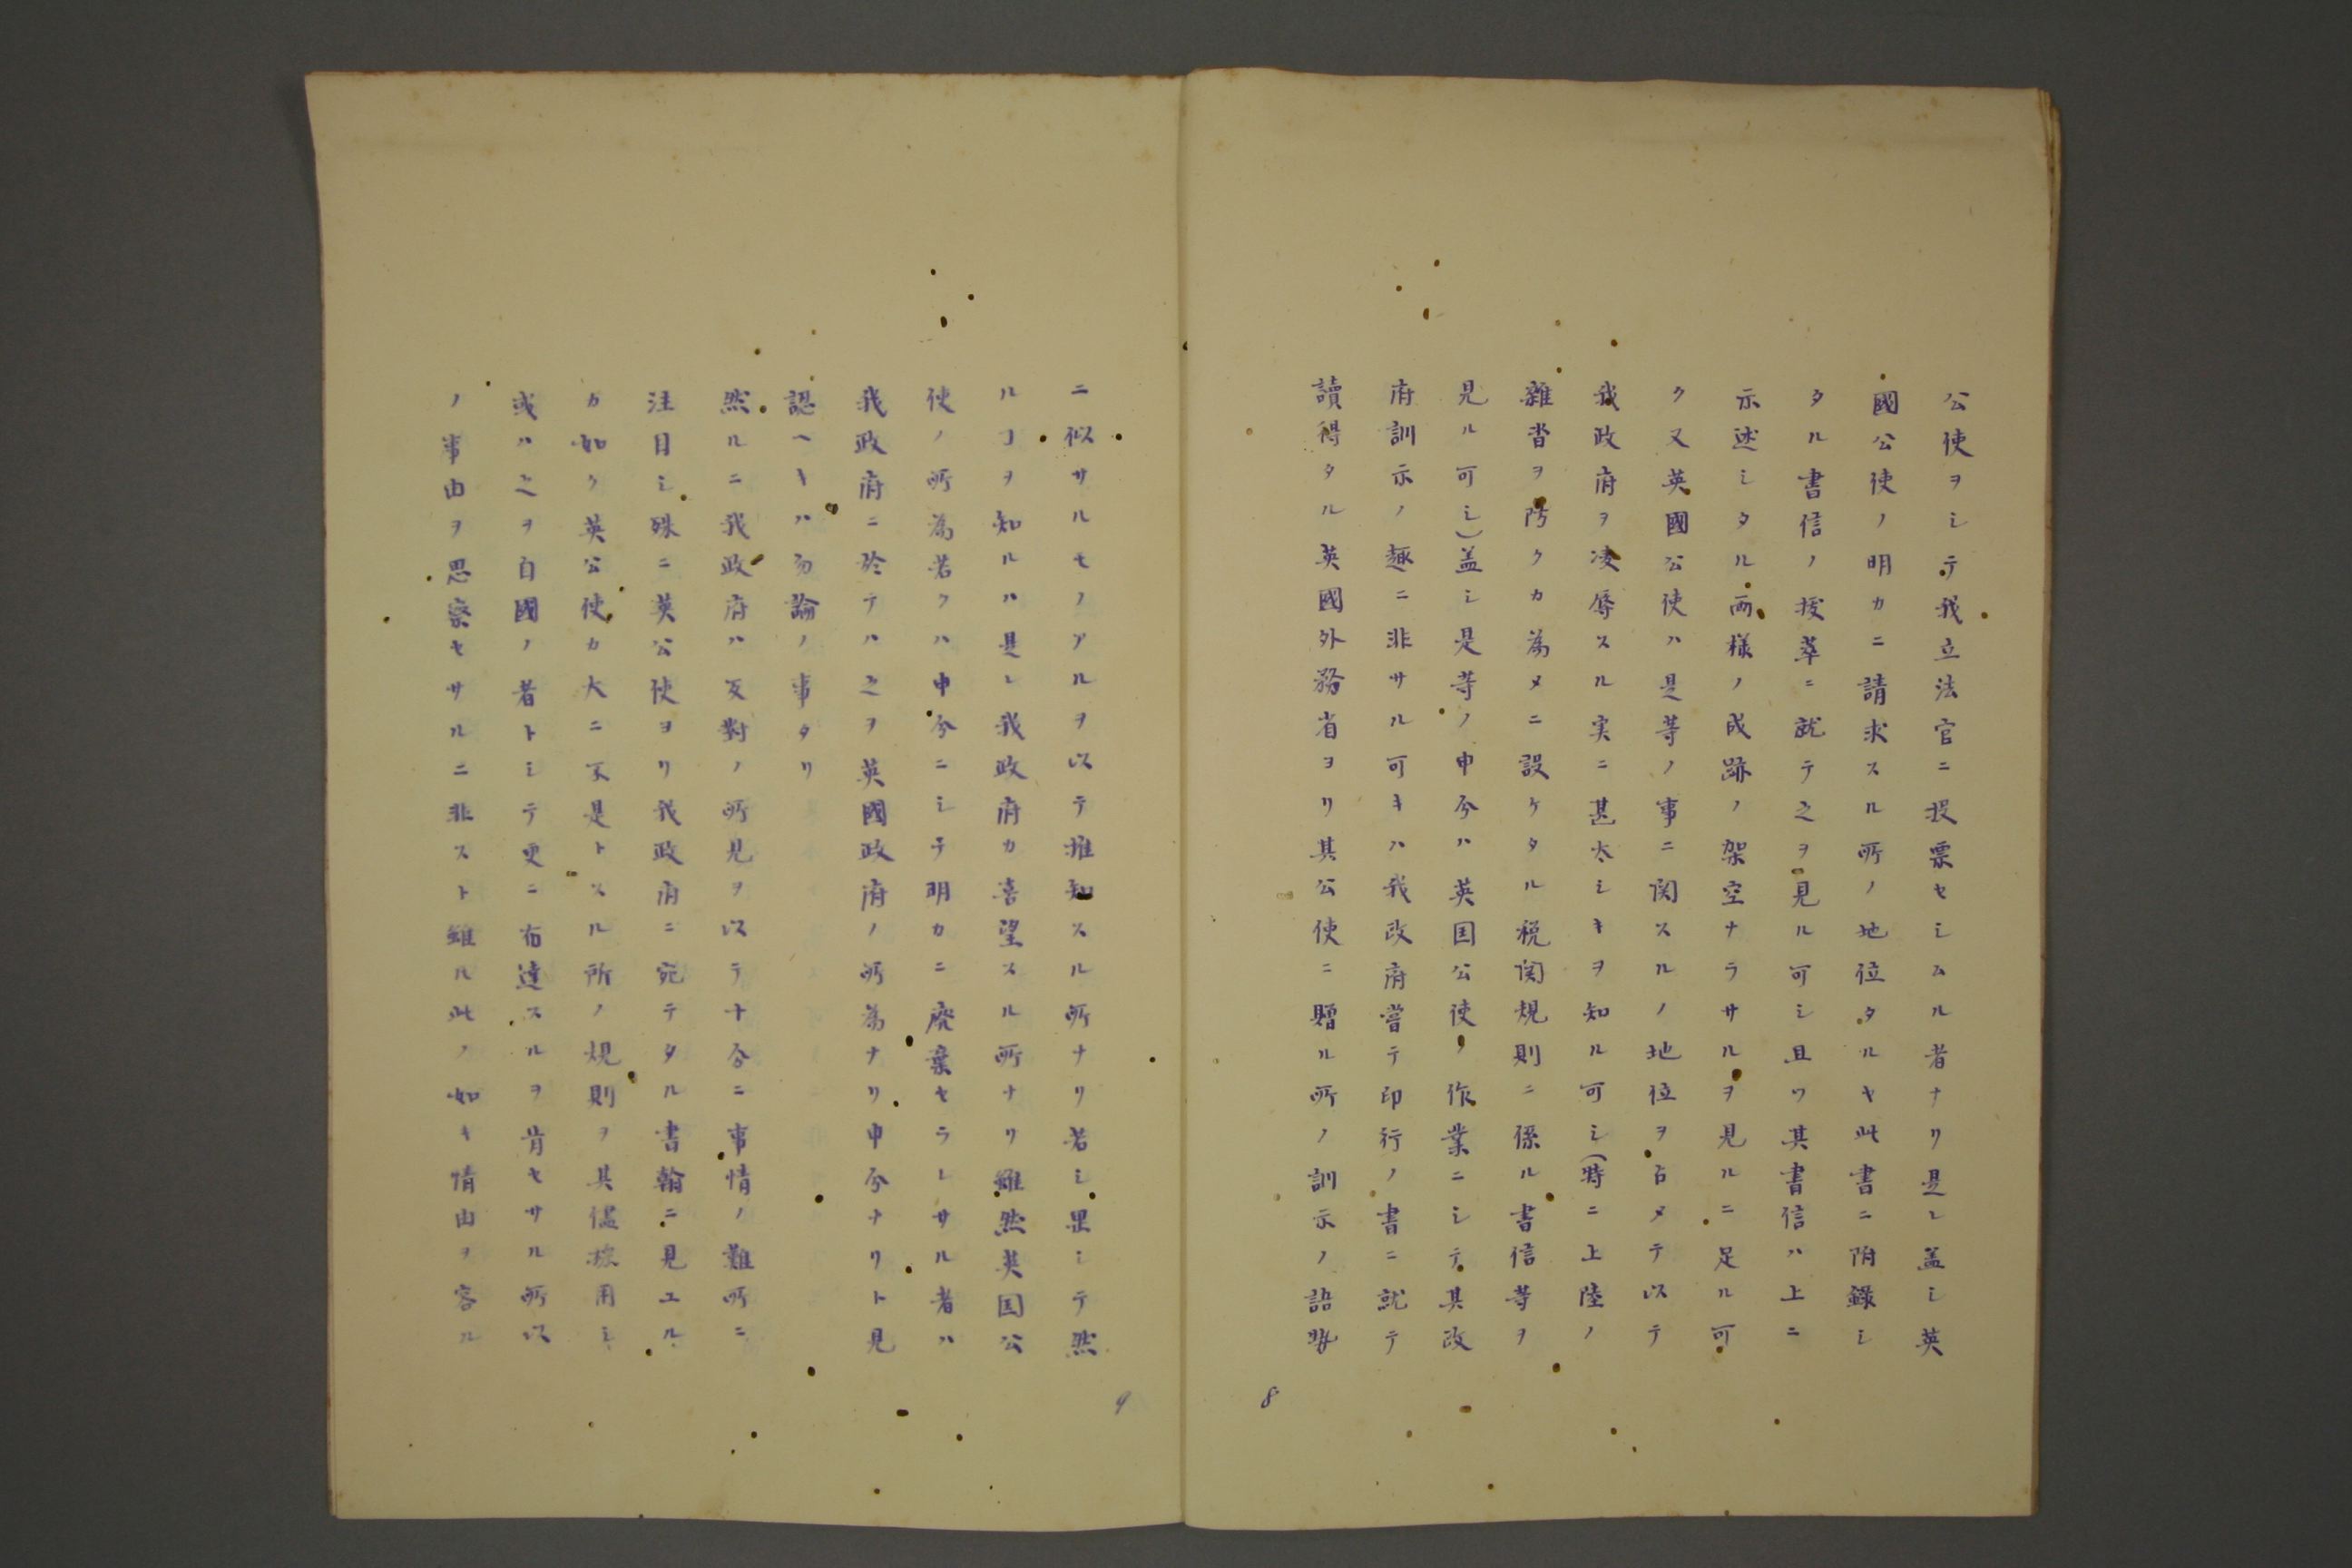 公使ヲシテ我立法官ニ投票セシムル者ナリ是レ盖シ英
國公使ノ明カニ請求スル所ノ地位タルヤ此書ニ附錄シ
タル書信ノ拔萃ニ就テ之ヲ見ル可シ且ツ其書信ハ上ニ
示述シタル両様ノ成跡ノ架空ナラサルヲ見ルニ足ル可
ク又英國公使ハ是等ノ事ニ関スルノ地位ヲ占メテ以テ
我政府ヲ凌辱スル実ニ甚太シキヲ知ル可シ(特ニ上陸ノ
雜沓ヲ防クカ為メニ設ケタル税関規則ニ係ル書信等ヲ
見ル可シ)盖シ是等ノ申分ハ英国公使ノ作業ニシテ其政
府訓示ノ趣ニ非サル可キハ我政府嘗テ印行ノ書ニ就テ
讀得タル英國外務省ヨリ其公使ニ贈ル所ノ訓示ノ語勢
8
ニ似サルモノアルヲ以テ推知スル所ナリ若シ果シテ然
ルヿヲ知ルハ是レ我政府カ喜望スル所ナリ雖然英国公
使ノ所為若クハ申分ニシテ明カニ廃棄セラレサル者ハ
我政府ニ於テハ之ヲ英國政府ノ所為ナリ申分ナリト見
認ヘキハ勿論ノ事タリ
然ルニ我政府ハ反對ノ所見ヲ以テ十分ニ事情ノ難所ニ
注目シ殊ニ英公使ヨリ我政府ニ宛テタル書翰ニ見エル
カ如ク英公使カ大ニ不是トスル所ノ規則ヲ其儘採用シ
或ハ之ヲ自國ノ者トシテ更ニ布達スルヲ肯セサル所以
ノ事由ヲ思察セサルニ非スト雖ル此ノ如キ情由ヲ容ル
9